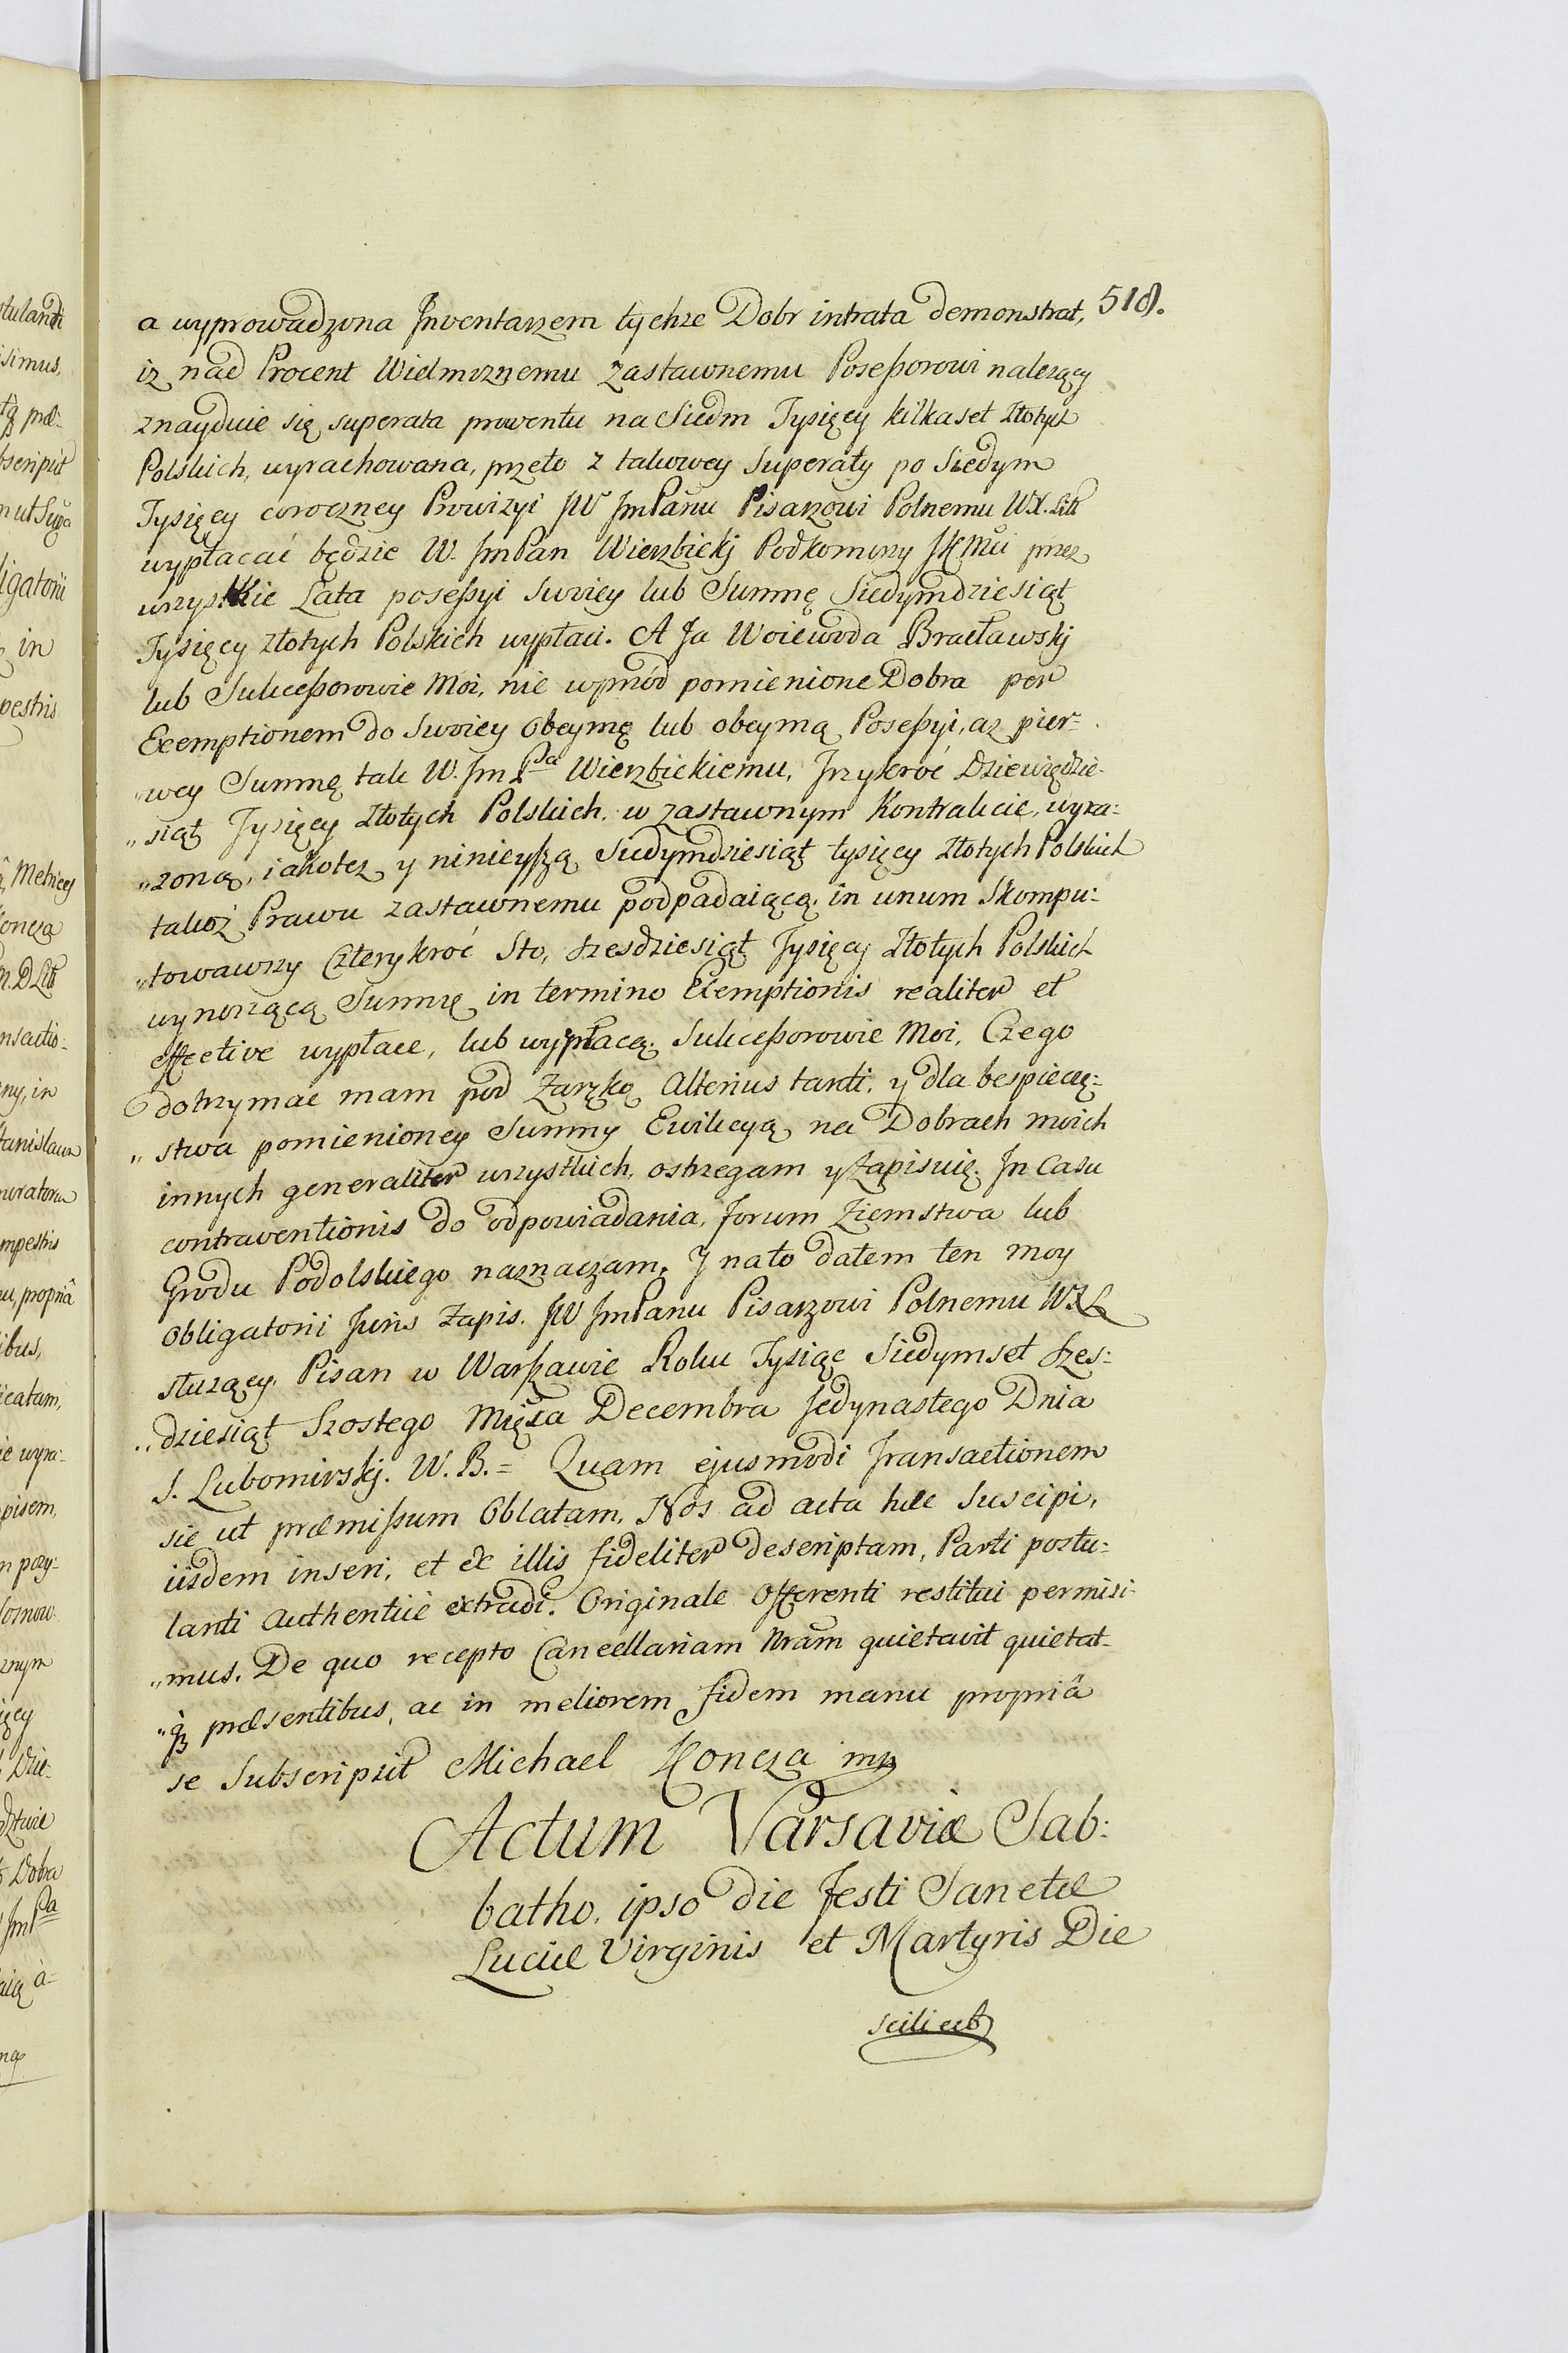 518.
a wyprowadzona Inwentarzem tychże Dobr intrata demonstrat,
iż nad Procent Wielmożnemu Zastawnemu Poseßorowi należący
znayduie się superata prowentu na Siedm Tysięcy kilkaset Złotych
Polskich, wyrachowana, przeto z takowey Superaty po Siedym
Tysięcy coroczney Prowizyi JW ImPanu Pisarzowi Polnemu WX. Litt
wypłacać będzie W. ImPan Wierzbickj Podkomorzy JKMci przez
wszystkie Lata poseßyi swoiey lub Summę Siedymdziesiąt
Tysięcy złotych Polskich wypłaci. A Ja Woiewoda Bracławskj
lub Sukceßorowie Moi, nie wprzód pomienione Dobra per
Exemptionem do Swoiey Obeymę lub obeymą Poseßyi, aż pier=
„wey Summę tak W. ImPa Wierzbickiemu, Trzykroć Dziewięćdzie-
„siąt Tysięcy Złotych Polskich, w zastawnym Kontrakcie, wyra=
„żoną, iakoteż y ninieyszą Siedymdziesiąt tysięcy Złotych Polskich
takoż Prawu zastawnemu podpadaiącą, in unum Skompu=
„towawszy Czterykroć Sto, szesdziesiąt Tysięcy Złotych Polskich
wynoszącą Summę in termino Exemptionis realiter et
effective wypłace, lub wypłacą Sukceßorowie Moi, Czego
dotrzymać mam pod Zaręką Alterius tanti, y dla bespieczę=
„stwa pomienioney Summy Ewikcyą na Dobrach moich
innych generaliter wszystkich, ostrzegam y Zapisuię. In Casu
contraventionis do odpowiadania, forum Ziemstwa lub
Grodu Podolskiego naznaczam. J na to dałem ten moy
Obligatorii Juris Zapis. JW ImPanu Pisarzowi Polnemu WXL
służący. Pisan w Warszawie Roku Tysiąc Siedymset szes=
„dziesiąt Szostego Mięsca Decembra Jedynastego Dnia
S. Lubomirskj. W. B. = Quam ejusmodi Transactionem
sic ut præmißum Oblatam, Nos ad acta hæc Suscipi,
iisdem inseri, et ex illis fideliter descriptam, Parti postu=
lanti authentice extradi. Originale Offerenti restitui permisi-
„mus. De quo recepto Cancellariam Nram quietavit quietat-
„q præsentibus, ac in meliorem fidem manu propriâ
se Subscripsit Michael Koncza mp
Actum Varsaviæ Sab:
batho, ipso die Festi Sanctæ
Luciæ Virginis et Martyris Die
scilicet